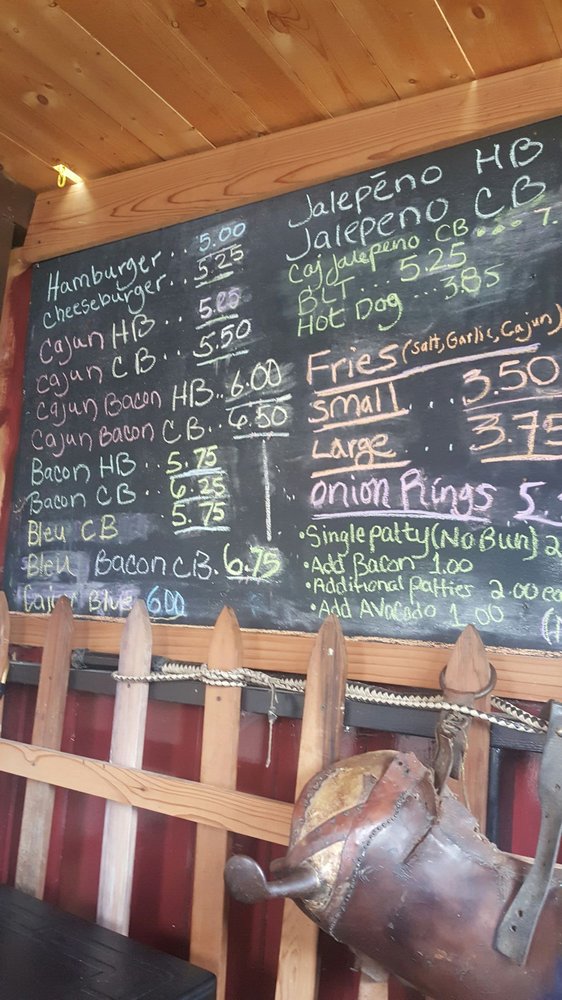 Hamburger .. 5.00
Cheeseburger .. 5.25
Cajun HB .. 5.25
Cajun CB .. 5.50
Cajun Bacon HB .. 6.00
Cajun Bacon CB .. 6.50
Bacon HB .. 5.75
Bacon CB .. 6.25
Bleu CB 5.75
Bleu Bacon CB. 6.75
Cajun Blue 6.00
Jalepēno HB
Jalepeno CB
Caj Jalepeno CB ... 7.
BLT ... 5.25
Hot Dog ... 3.85
Fries (Salt, Garlic, Cajun)
Small ... 3.50
Large ... 3.75
Onion Rings 5.
• Single patty (No Bun) 2
• Add Bacon 1.00
• Additional patties 2.00
• Add Avacado 1.00